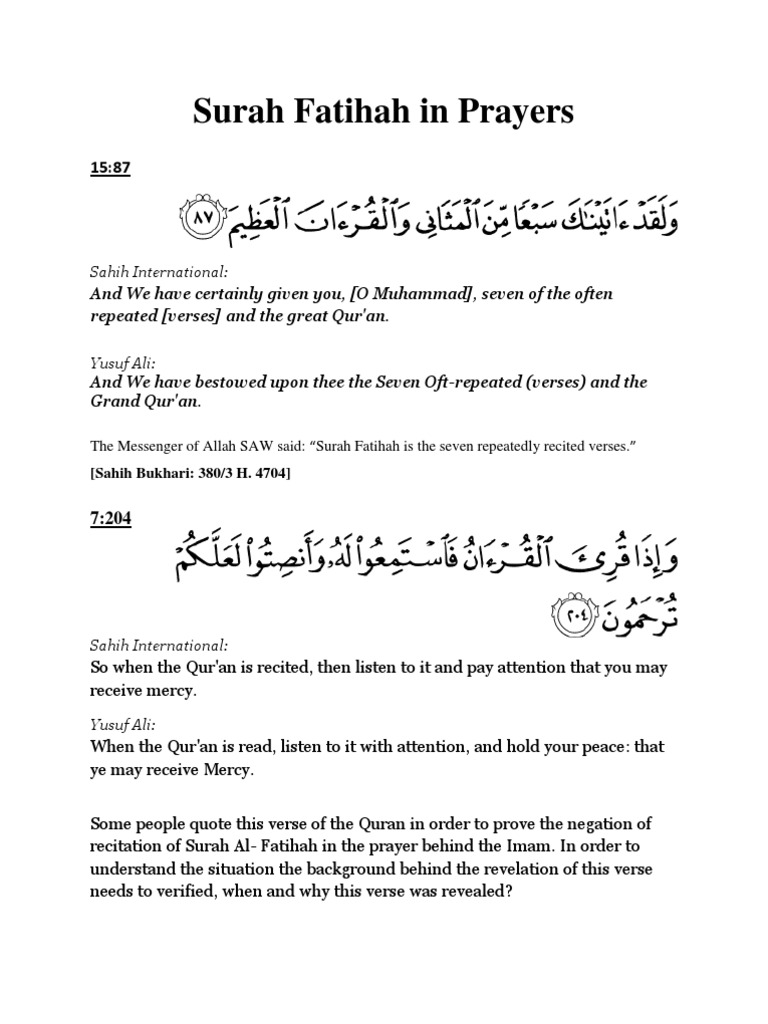 Surah Fatihah in Prayers
15:87
وَلَقَدْ ءَاتَيْنَٰكَ سَبْعًا مِّنَ ٱلْمَثَانِى وَٱلْقُرْءَانَ ٱلْعَظِيمَ ٨٧
Sahih International:
And We have certainly given you, [O Muhammad], seven of the often
repeated [verses] and the great Qur'an.
Yusuf Ali:
And We have bestowed upon thee the Seven Oft-repeated (verses) and the
Grand Qur'an.
The Messenger of Allah SAW said: “Surah Fatihah is the seven repeatedly recited verses.”
[Sahih Bukhari: 380/3 H. 4704]
7:204
وَإِذَا قُرِئَ ٱلْقُرْءَانُ فَٱسْتَمِعُوا۟ لَهُۥ وَأَنصِتُوا۟ لَعَلَّكُمْ
تُرْحَمُونَ ٢٠٤
Sahih International:
So when the Qur'an is recited, then listen to it and pay attention that you may
receive mercy.
Yusuf Ali:
When the Qur'an is read, listen to it with attention, and hold your peace: that
ye may receive Mercy.
Some people quote this verse of the Quran in order to prove the negation of
recitation of Surah Al- Fatihah in the prayer behind the Imam. In order to
understand the situation the background behind the revelation of this verse
needs to verified, when and why this verse was revealed?